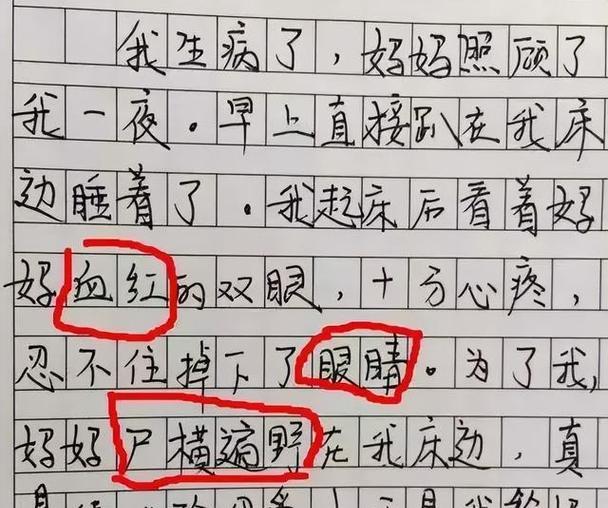 我生病了，妈妈照顾了
我一夜。早上直接趴在我床
边睡着了。我起床后看着妈
妈血红的双眼，十方心疼，
忍不住掉下了眼睛。为了我，
妈妈尸横遍野在我床边，真